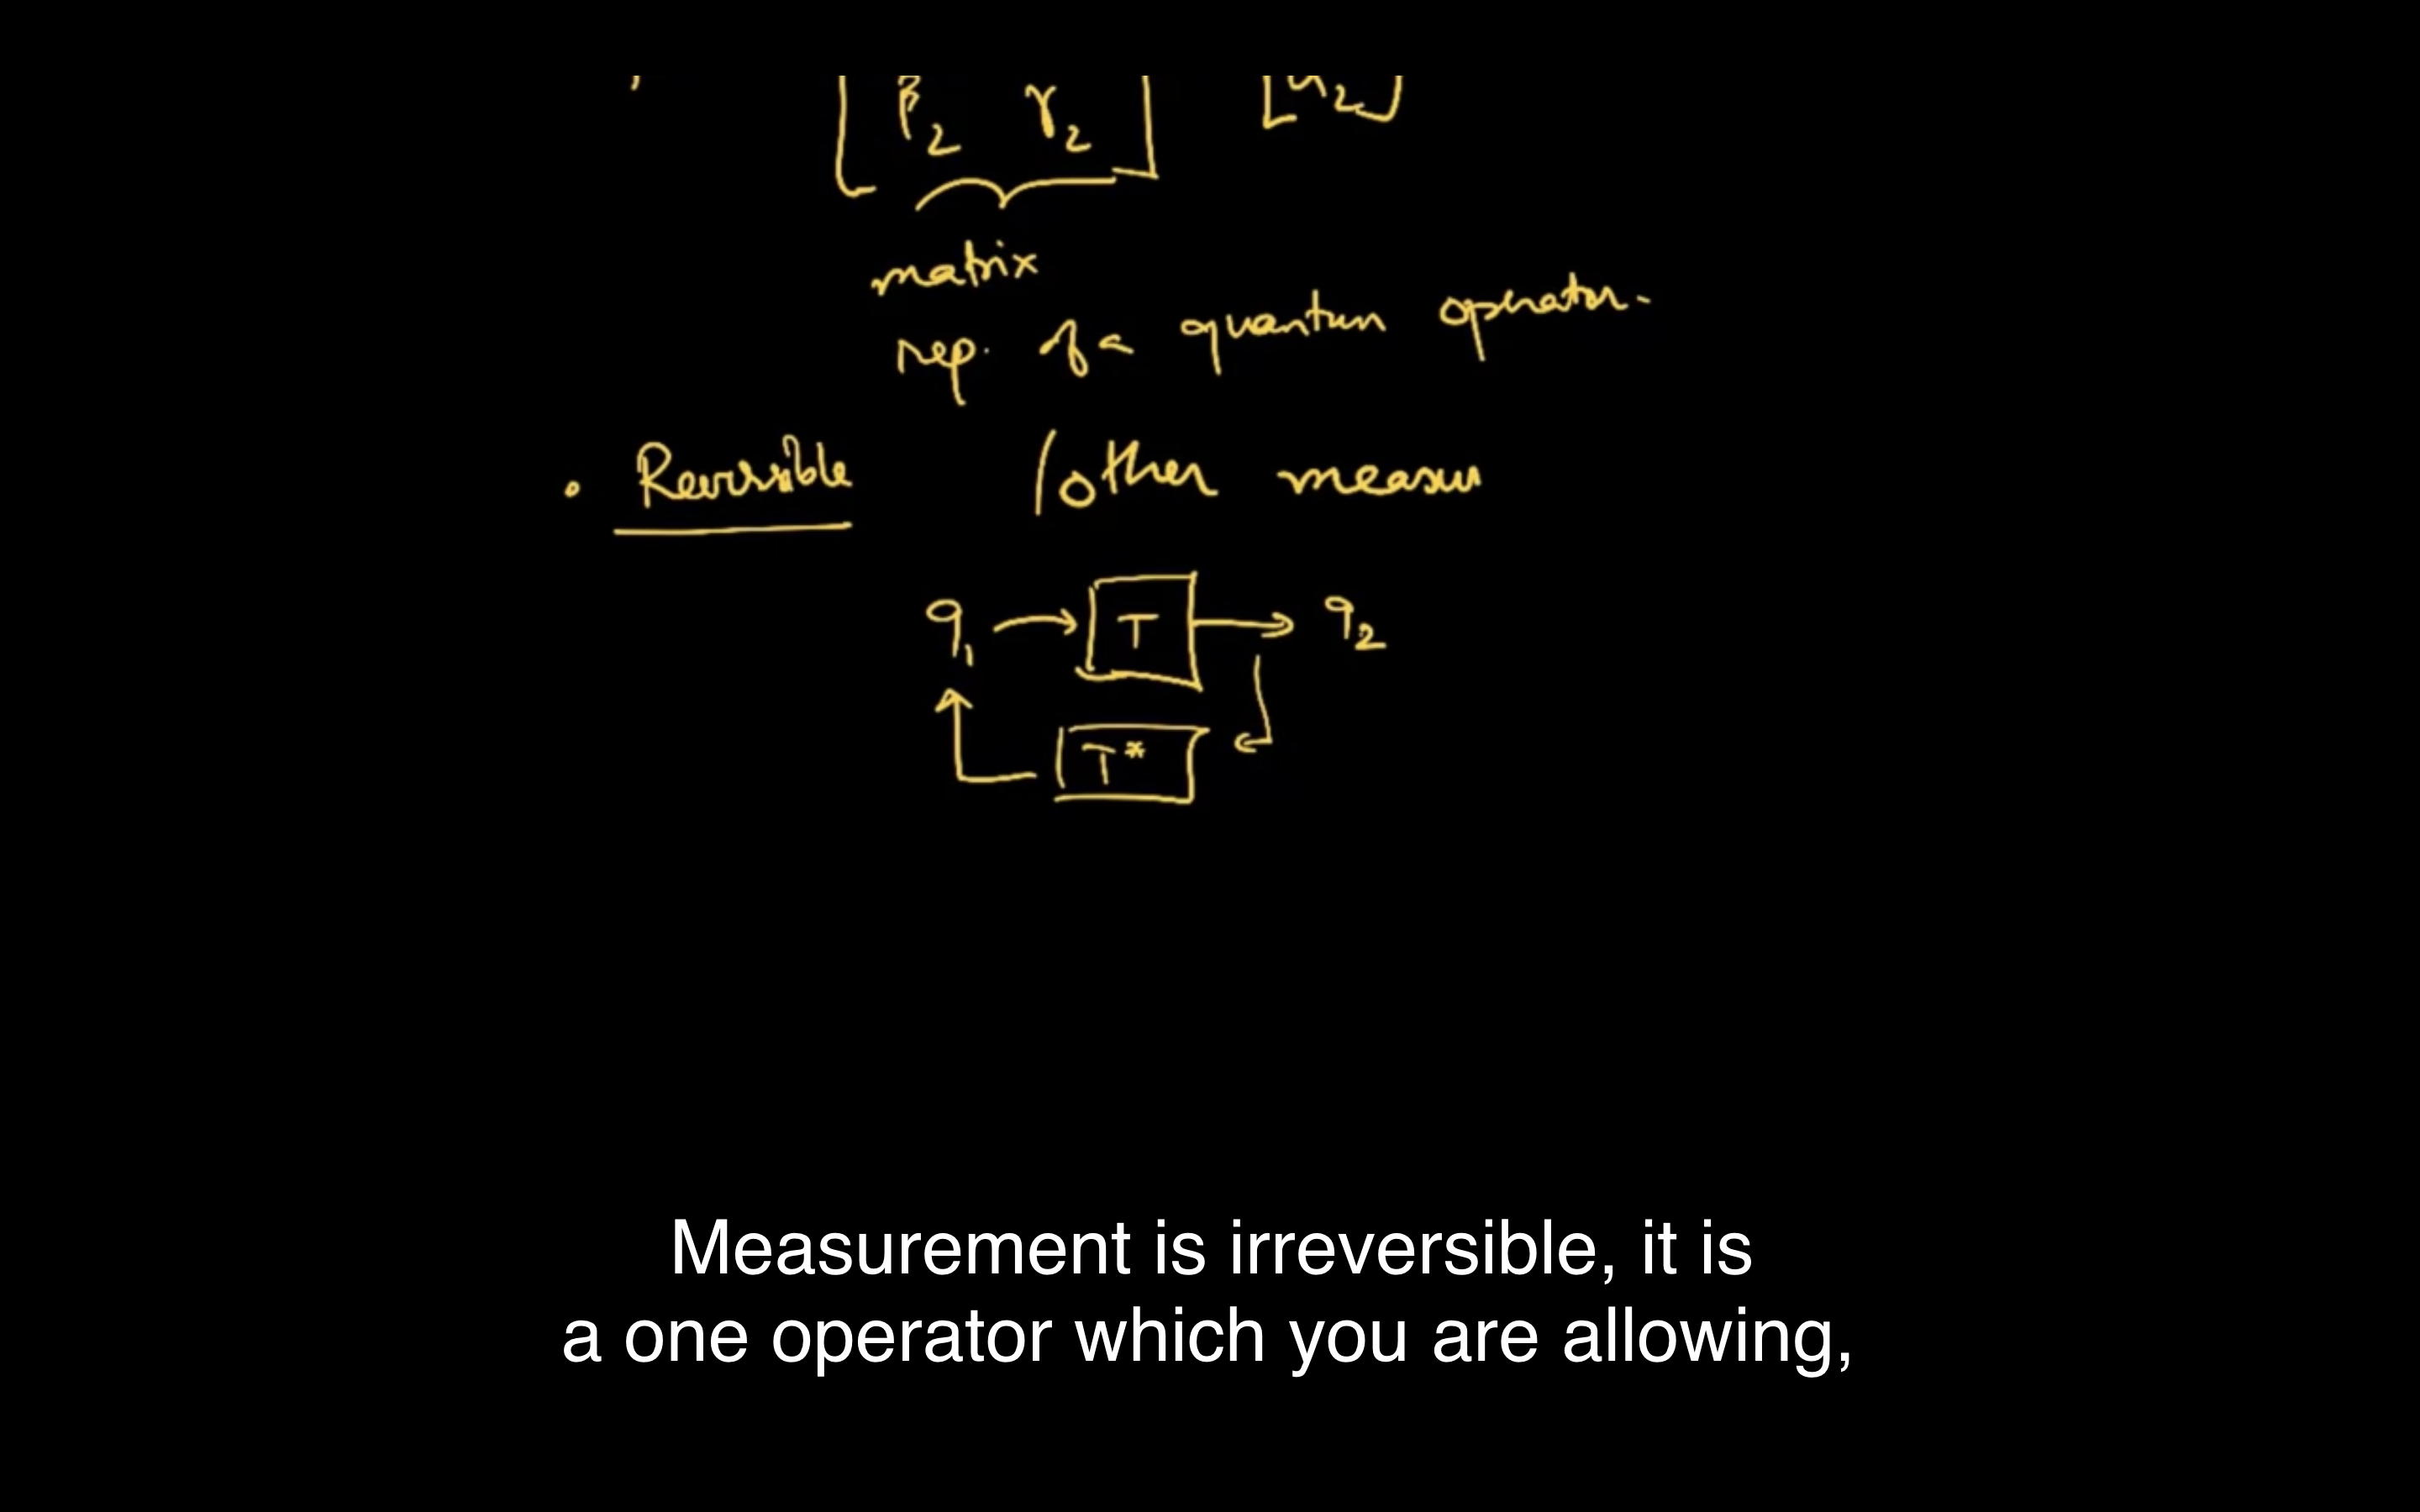 β2 γ2
matrix
rep. of a quantum operator.
• Reversible /other measur
q1 T q2
T*
Measurement is irreversible, it is
a one operator which you are allowing,